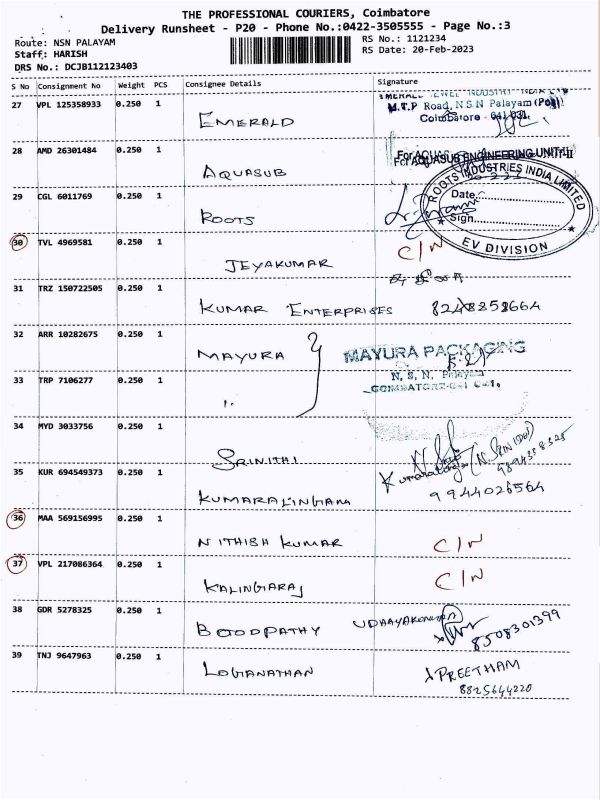 THE PROFESSIONAL COURIERS, Coimbatore
Delivery Runsheet - P20 - Phone No.:0422-3505555 - Page No.:3
Route: NSN PALAYAM
RS No.: 1121234
Staff: HARISH
RS Date: 20-Feb-2023
DRS No.: DCJB112123403
S No Consignment No Weight PCS Consignee Details Signature
27 VPL 125358933 0.250 1 EMERALD
M.T.P Road, N.S.N Palayam (Post)
Coimbatore - 641 031.
28 AMD 26301484 0.250 1 AQUASUB
For AQUASUB ENGINEERING UNIT-II
29 CGL 6011769 0.250 1 ROOTS
ROOTS INDUSTRIES INDIA LIMITED
Date
Sign
EV DIVISION
30 TVL 4969581 0.250 1 JEYAKUMAR C/N
31 TRZ 150722505 0.250 1 KUMAR ENTERPRISES
32 ARR 10282675 0.250 1 MAYURA
MAYURA PACKAGING
N. S. N. Palayam
33 TRP 7106277 0.250 1
34 MYD 3033756 0.250 1 SRINITHI
35 KUR 694549373 0.250 1 KUMARALINGAM
9944026564
36 MAA 569156995 0.250 1 NITHISH KUMAR C/N
37 VPL 217086364 0.250 1 KALINGARAJ C/N
38 GDR 5278325 0.250 1 BOOPATHY
8508301399
39 TNJ 9647963 0.250 1 LOGANATHAN PREETHAM
8825644220